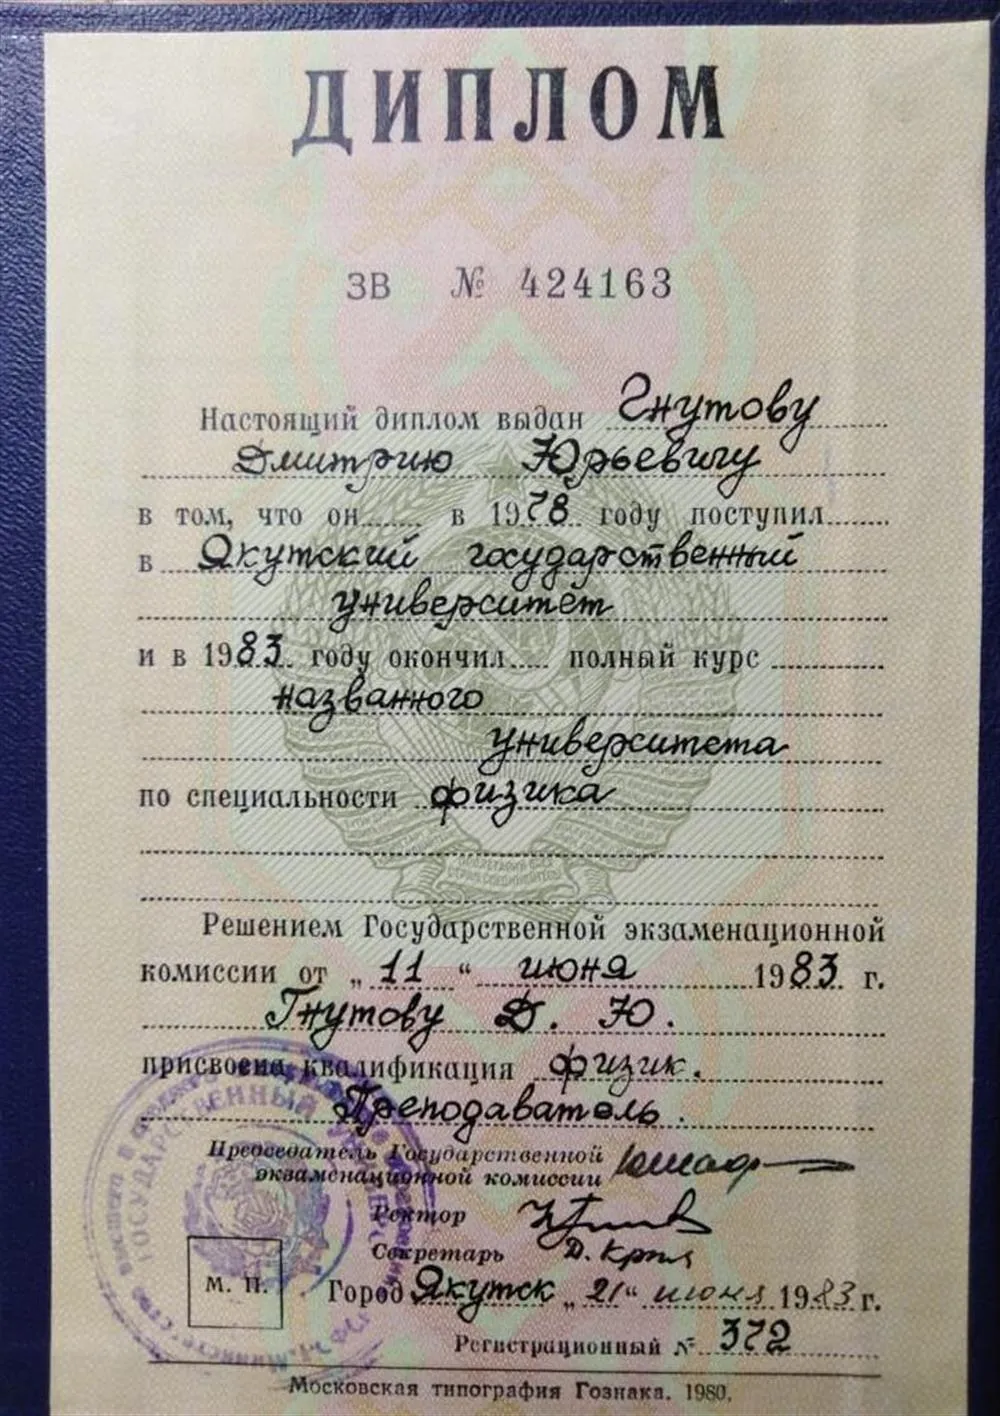 ДИПЛОМ
ЗВ № 424163
Настоящий диплом выдан Гнутову
Дмитрию Юрьевичу
в том, что он в 1978 году поступил
в Якутский государственный
университет
и в 1983 году окончил полный курс
названного
университета
по специальности физика
Решением Государственной экзаменационной
комиссии от „11“ июня 1983 г.
Гнутову Д. Ю.
присвоена квалификация физик.
Преподаватель.
Председатель Государственной
экзаменационной комиссии
Ректор
Секретарь
М. П.
Город Якутск „21“ июня 1983 г.
Регистрационный № 372
Московская типография Гознака. 1980.